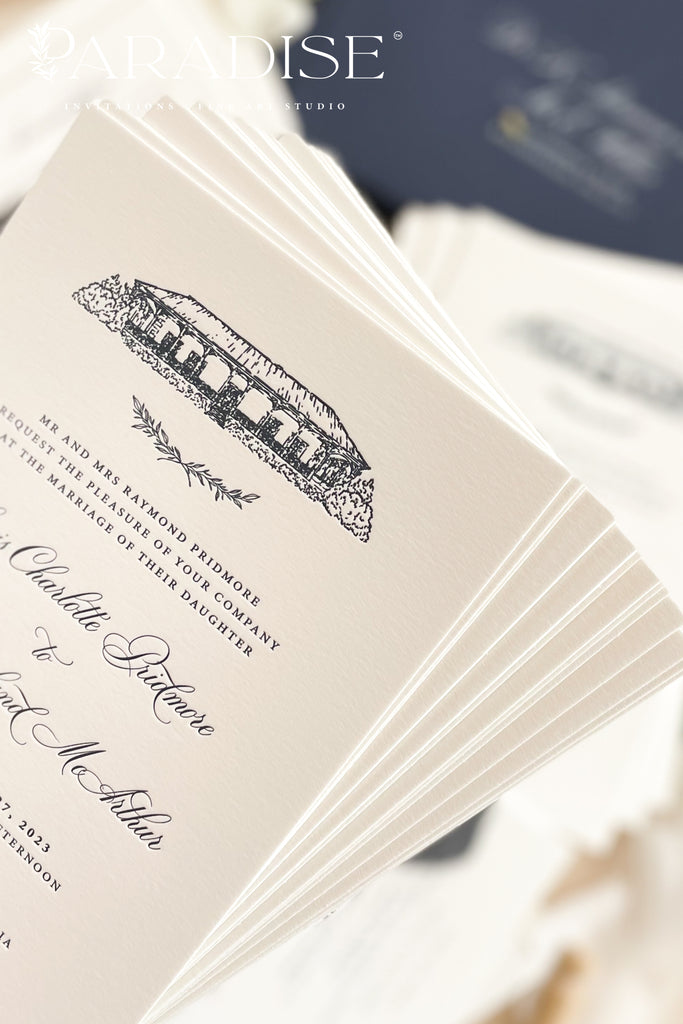 PARADISE™
INVITATIONS + FINE ART STUDIO
MR AND MRS RAYMOND PRIDMORE
REQUEST THE PLEASURE OF YOUR COMPANY
AT THE MARRIAGE OF THEIR DAUGHTER
Charlotte Pridmore
to
McArthur
2023